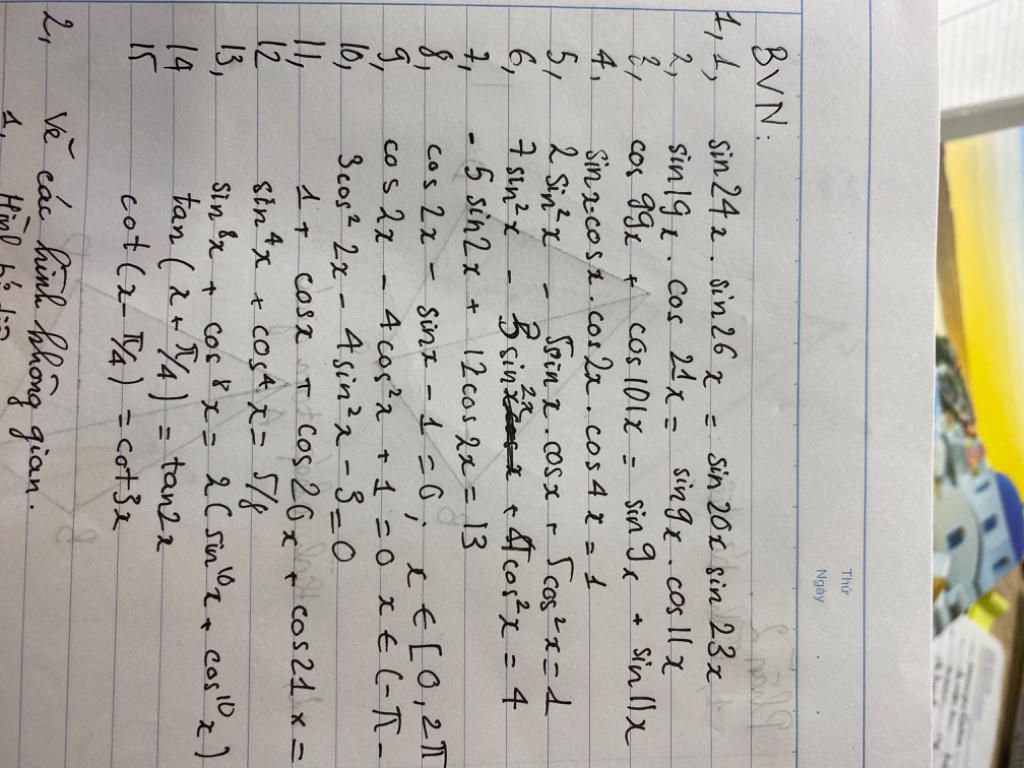 Thứ
Ngày
BVN:
1, 1, sin24x . sin26x = sin20x sin23x
2, sin19x . cos 21x = sin9x . cos11x
cos 99x + cos101x = sin9x + sin11x
4, sinxcosx . cos2x . cos4x = 1
5, 2sin²x - 5sinx.cosx + 5cos²x = 1
6, 7sin²x - sin2x + cos²x = 4
7, - 5sin2x + 12cos2x = 13
8, cos2x - sinx - 1 = 0; x ∈ [0, 2π
9, cos2x - 4cos²x + 1 = 0 x ∈ (-π -
10, 3cos²2x - 4sin²x - 3 = 0
11, 1 + cosx + cos20x + cos21x =
12 sin⁴x + cos⁴x = 5/8
13, sin⁸x + cos⁸x = 2(sin¹⁰x + cos¹⁰x)
14 tan(x + π/4) = tan2x
15 cot(x - π/4) = cot3x
2, Vẽ các hình không gian.
1, Hình